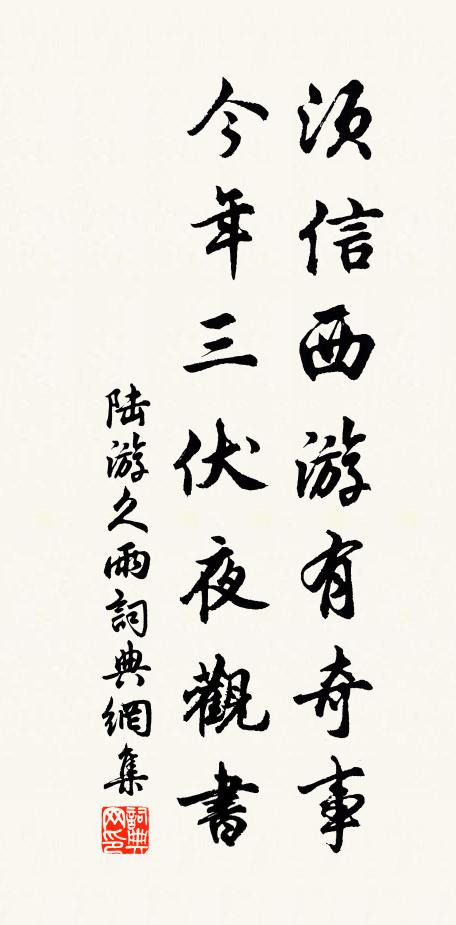 須信西游有奇事
今年三伏夜觀書
陸游久雨詞典網集
詞典网印